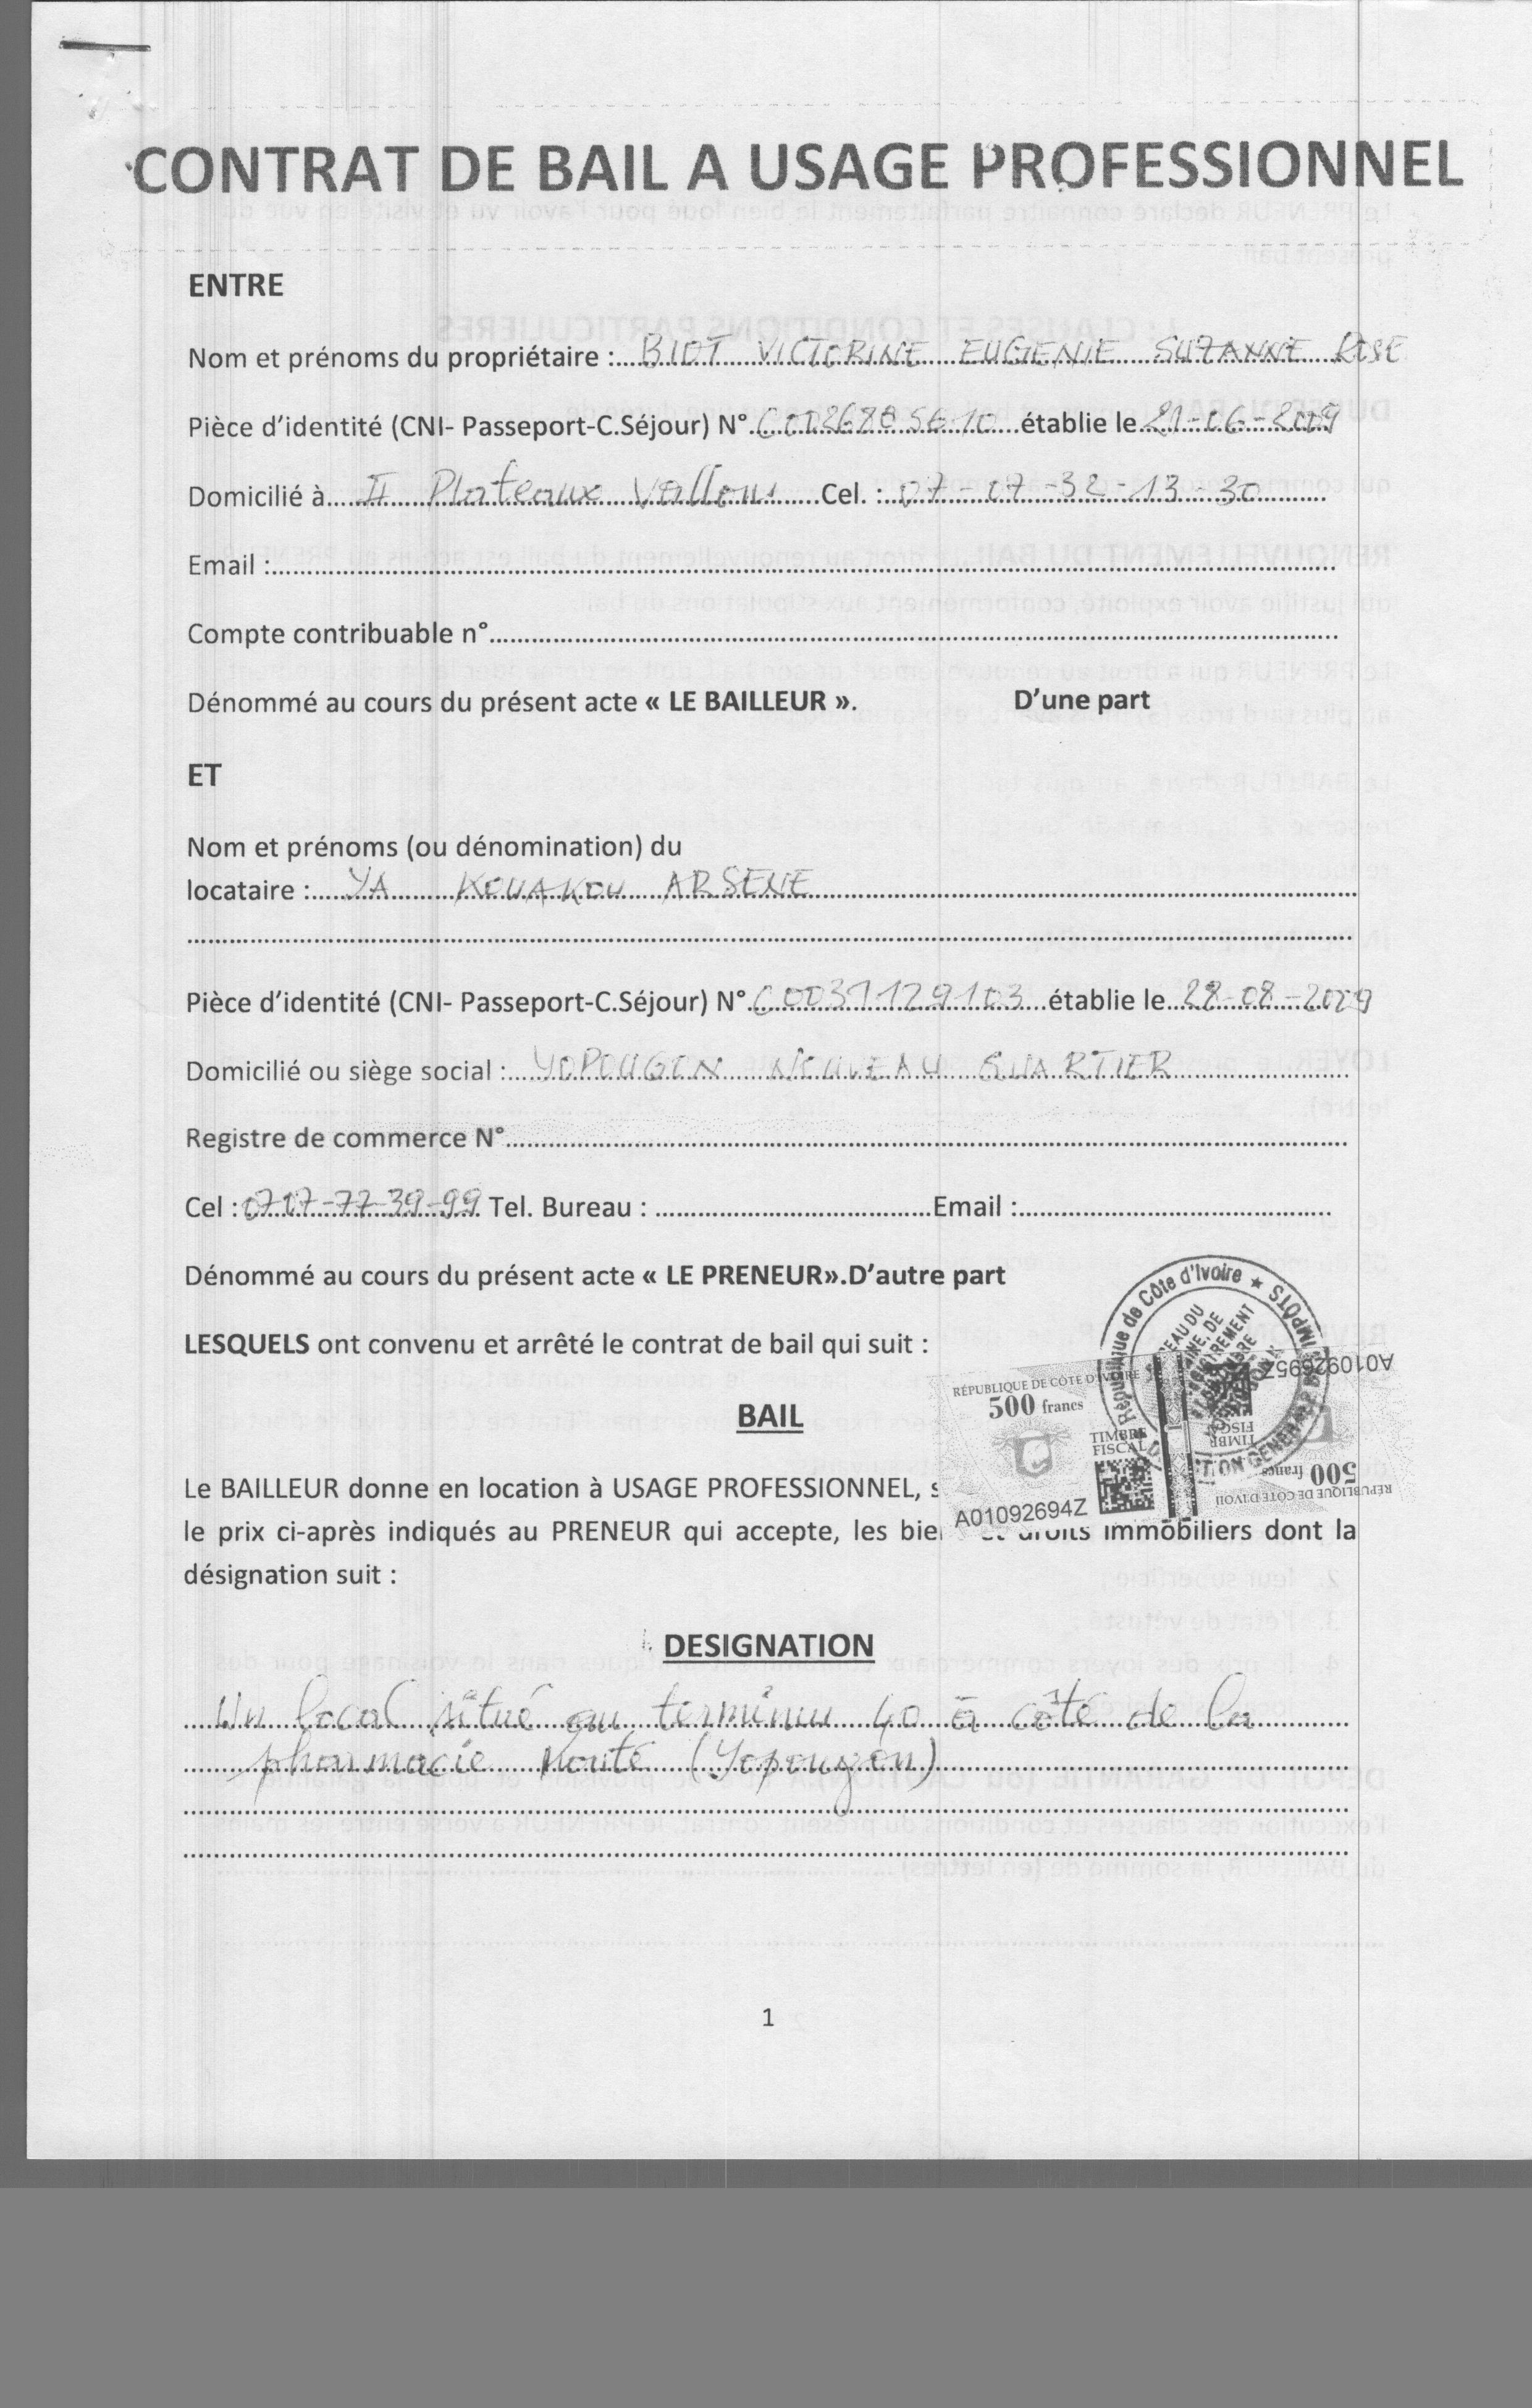 CONTRAT DE BAIL A USAGE PROFESSIONNEL
ENTRE
Nom et prénoms du propriétaire : BIOT VICTORINE EUGENIE SUZANNE ROSE
Pièce d'identité (CNI- Passeport-C.Séjour) N° C0026805610 établie le 21-06-2009
Domicilié à II Plateaux Vallons Cel. : 07-07-32-13-30
Email :
Compte contribuable n°
Dénommé au cours du présent acte « LE BAILLEUR ». D'une part
ET
Nom et prénoms (ou dénomination) du
locataire : YA KOUAKOU ARSENE
Pièce d'identité (CNI- Passeport-C.Séjour) N° C0031129103 établie le 28-08-2009
Domicilié ou siège social : YOPOUGON NOUVEAU QUARTIER
Registre de commerce N°
Cel : 0707-77-39-99 Tel. Bureau : Email :
Dénommé au cours du présent acte « LE PRENEUR».D'autre part
LESQUELS ont convenu et arrêté le contrat de bail qui suit :
République de Côte d'Ivoire ★ IMPÔTS
A01092695Z
RÉPUBLIQUE DE CÔTE D'IVOIRE
500 francs
TIMBRE
FISCAL
A01092694Z
500 francs
BAIL
Le BAILLEUR donne en location à USAGE PROFESSIONNEL,
le prix ci-après indiqués au PRENEUR qui accepte, les droits immobiliers dont la
désignation suit :
DESIGNATION
Un local situé au terminus 40 à côté de la
pharmacie (Yopougon)
1